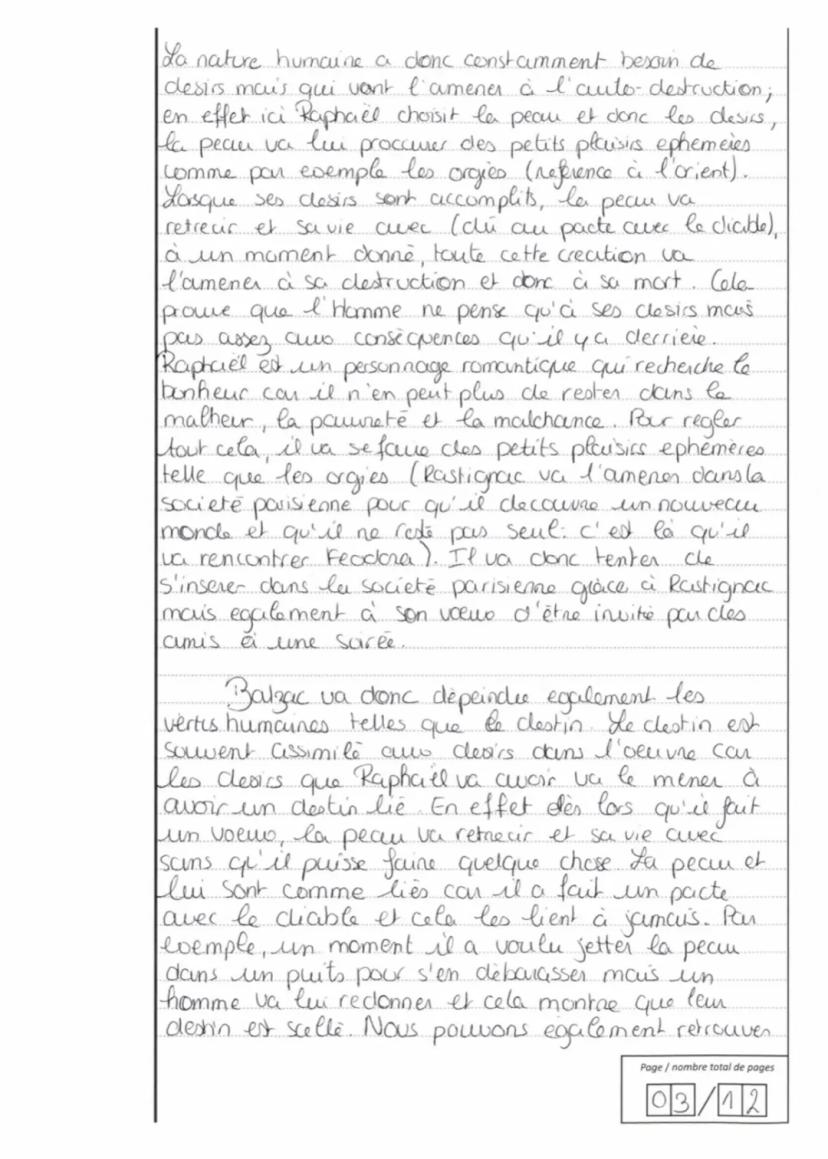 La nature humaine a donc constamment besoin de
desirs mais qui vont l'amener à l'auto-destruction ;
en effet ici Raphaël choisit la peau et donc les desirs,
la peau va lui proccurer des petits plaisirs ephemères
comme par exemple les orgies (reference à l'orient).
Lorsque ses desirs sont accomplits, la peau va
retrecir et sa vie avec (dû au pacte avec le diable),
à un moment donné, toute cette creation va
l'amener à sa destruction et donc à sa mort. Cela
prouve que l'Homme ne pense qu'à ses desirs mais
pas assez aux conséquences qu'il y a derrière.
Raphaël est un personnage romantique qui recherche le
bonheur car il n'en peut plus de rester dans le
malheur, la pauvreté et la malchance. Pour regler
tout cela, il va se faire des petits plaisirs ephémères
telle que les orgies (Rastignac va l'amener dans la
societé parisienne pour qu'il decouvre un nouveau
monde et qu'il ne reste pas seul : c'est là qu'il
va rencontrer Feodora). Il va donc tenter de
s'inserer dans la societé parisienne grâce à Rastignac
mais egalement à son voeux d'être invité par des
amis à une soirée.
Balzac va donc dépeindre egalement les
vertus humaines telles que le destin. Le destin est
souvent assimilé aux desirs dans l'oeuvre car
les desirs que Raphaël va avoir va le mener à
avoir un destin lié. En effet dès lors qu'il fait
un voeux, la peau va retrecir et sa vie avec
sans qu'il puisse faire quelque chose. La peau et
lui sont comme liés car il a fait un pacte
avec le diable et cela les lient à jamais. Par
exemple, un moment il a voulu jetter la peau
dans un puits pour s'en débarasser mais un
homme va lui redonner et cela montre que leur
destin est scellé. Nous pouvons également retrouver
Page / nombre total de pages
03/12